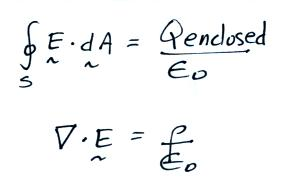 ∮_S Ḛ · d̰A = Qenclosed / ε₀
∇ · Ḛ = ρ / ε₀